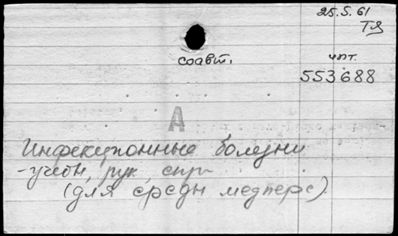 25.5.61
ТЯ
соавт.
чит.
553688
А
Инфекционные болезни
-учебн, рук, спр
(для средн медперс)